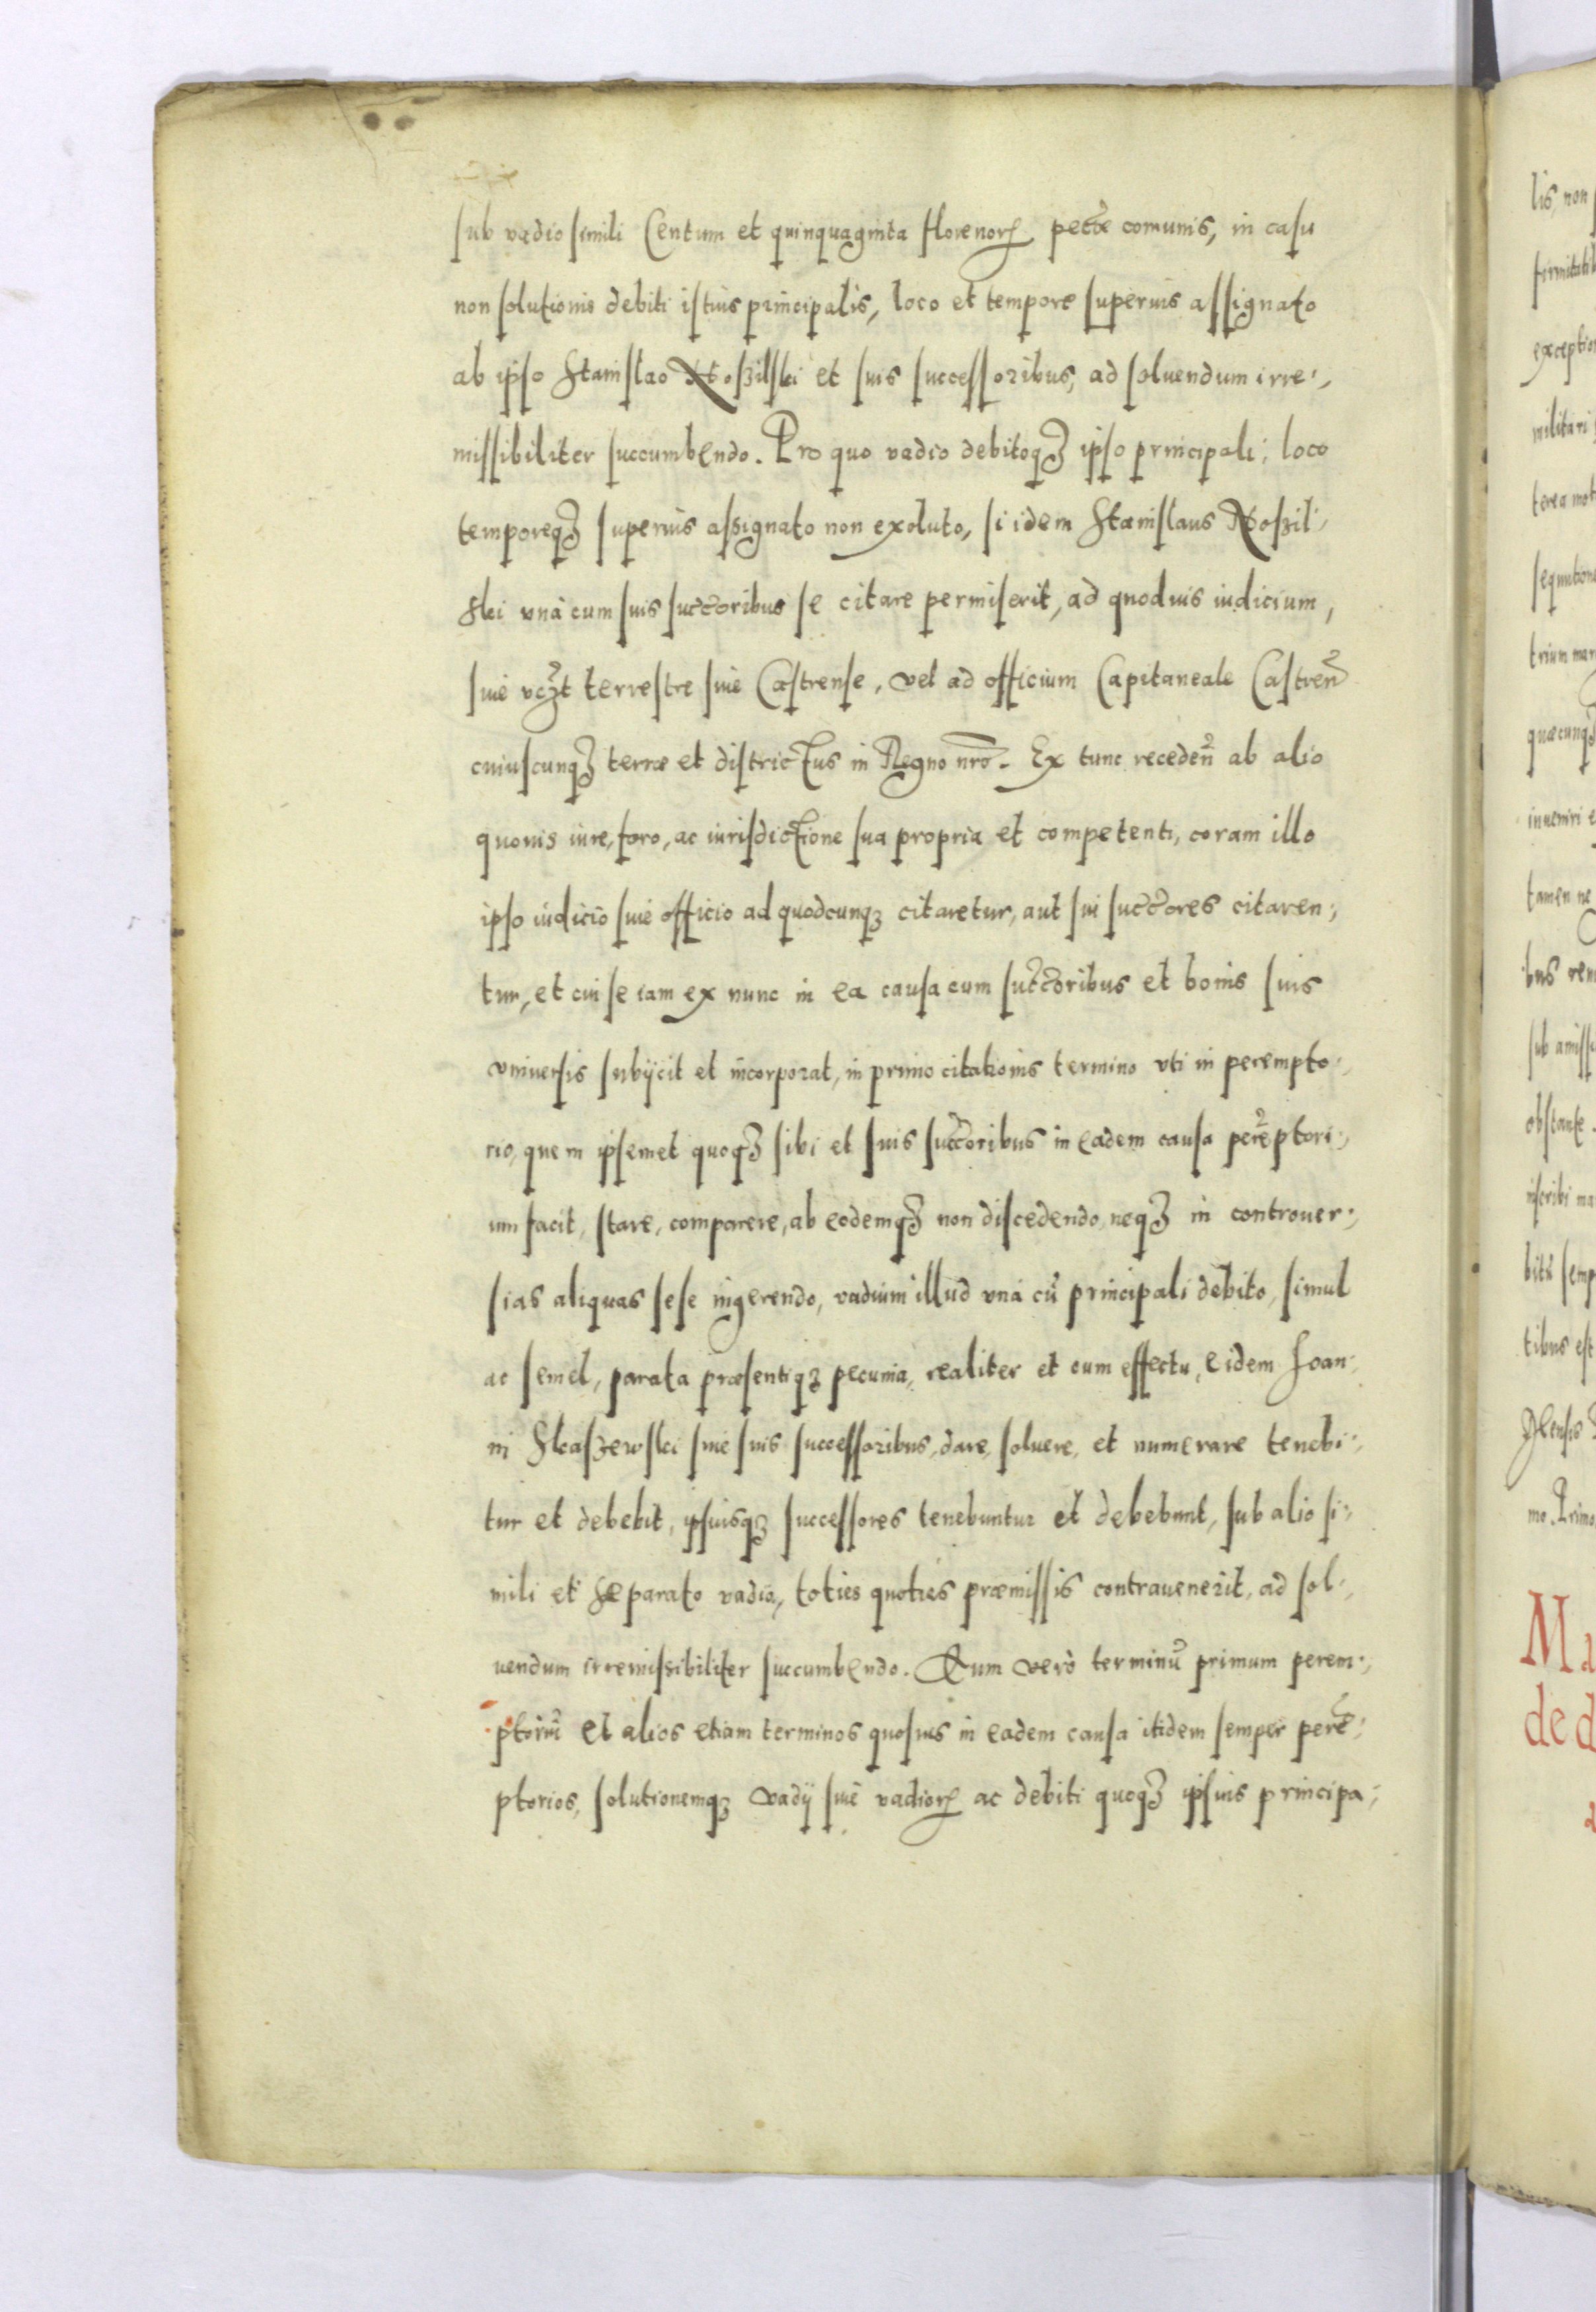 sub vadio simili Centum et quinquaginta florenoꝝ peccu͂e comunis, in casu
non solutionis debiti istius principalis, loco et tempore superius assignato
ab ipso Stanislao Noszilski et suis successoribus, ad soluendum irre⸗
missibiliter succumbendo. Pro quo vadio debitoqꝫ ipso principali, loco
temporeqꝫ superius assignato non exoluto, si idem Stanislaus Noszil⸗
ski vnà cum suis succ͂oribus se citare permiserit, ad quoduis iudicium,
siue vcꝫt terrestre siue Castrense, vel ad officium Capitaneale Castren̄
cuiuscunqꝫ terræ et districtus in Regno nr̄o. Ex tunc recedeñ ab alio
quouis iure, foro, ac iurisdictione sua propria et competenti, coram illo
ipso iudicio siue officio ad quodcunqꝫ citaretur, aut sui succ͂ores citaren⸗
tur, et cui se iam ex nunc in ea causa cum succ͂oribus et bonis suis
vniuersis subijcit et incorporat, in primo citationis termino vti in perempto⸗
rio, quem ipsemet quoqꝫ sibi et suis succ͂oribus in eadem causa per̄eptori⸗
um facit, stare, comparere, ab eodemqꝫ non discedendo, neqꝫ in controuer⸗
sias aliquas sese ingerendo, vadium illud vnà cū principali debito, simul
ac semel, parata præsentiqꝫ pecunia, realiter et cum effectu, eidem Joan⸗
ni Skaszewski siue suis successoribus, dare, soluere, et numerare tenebi⸗
tur et debebit, ipsiusqꝫ successores tenebuntur et debebunt, sub alio si⸗
mili et separato vadio, toties quoties præmissis contrauenerit, ad sol⸗
uendum irremissibiliter succumbendo. Quum verò terminū primum perem⸗
ptoriū et alios etiam terminos quosuis in eadem causa itidem semper perē⸗
ptorios, solutionemqꝫ vadij siue vadioꝝ ac debiti quoqꝫ ipsius principa⸗